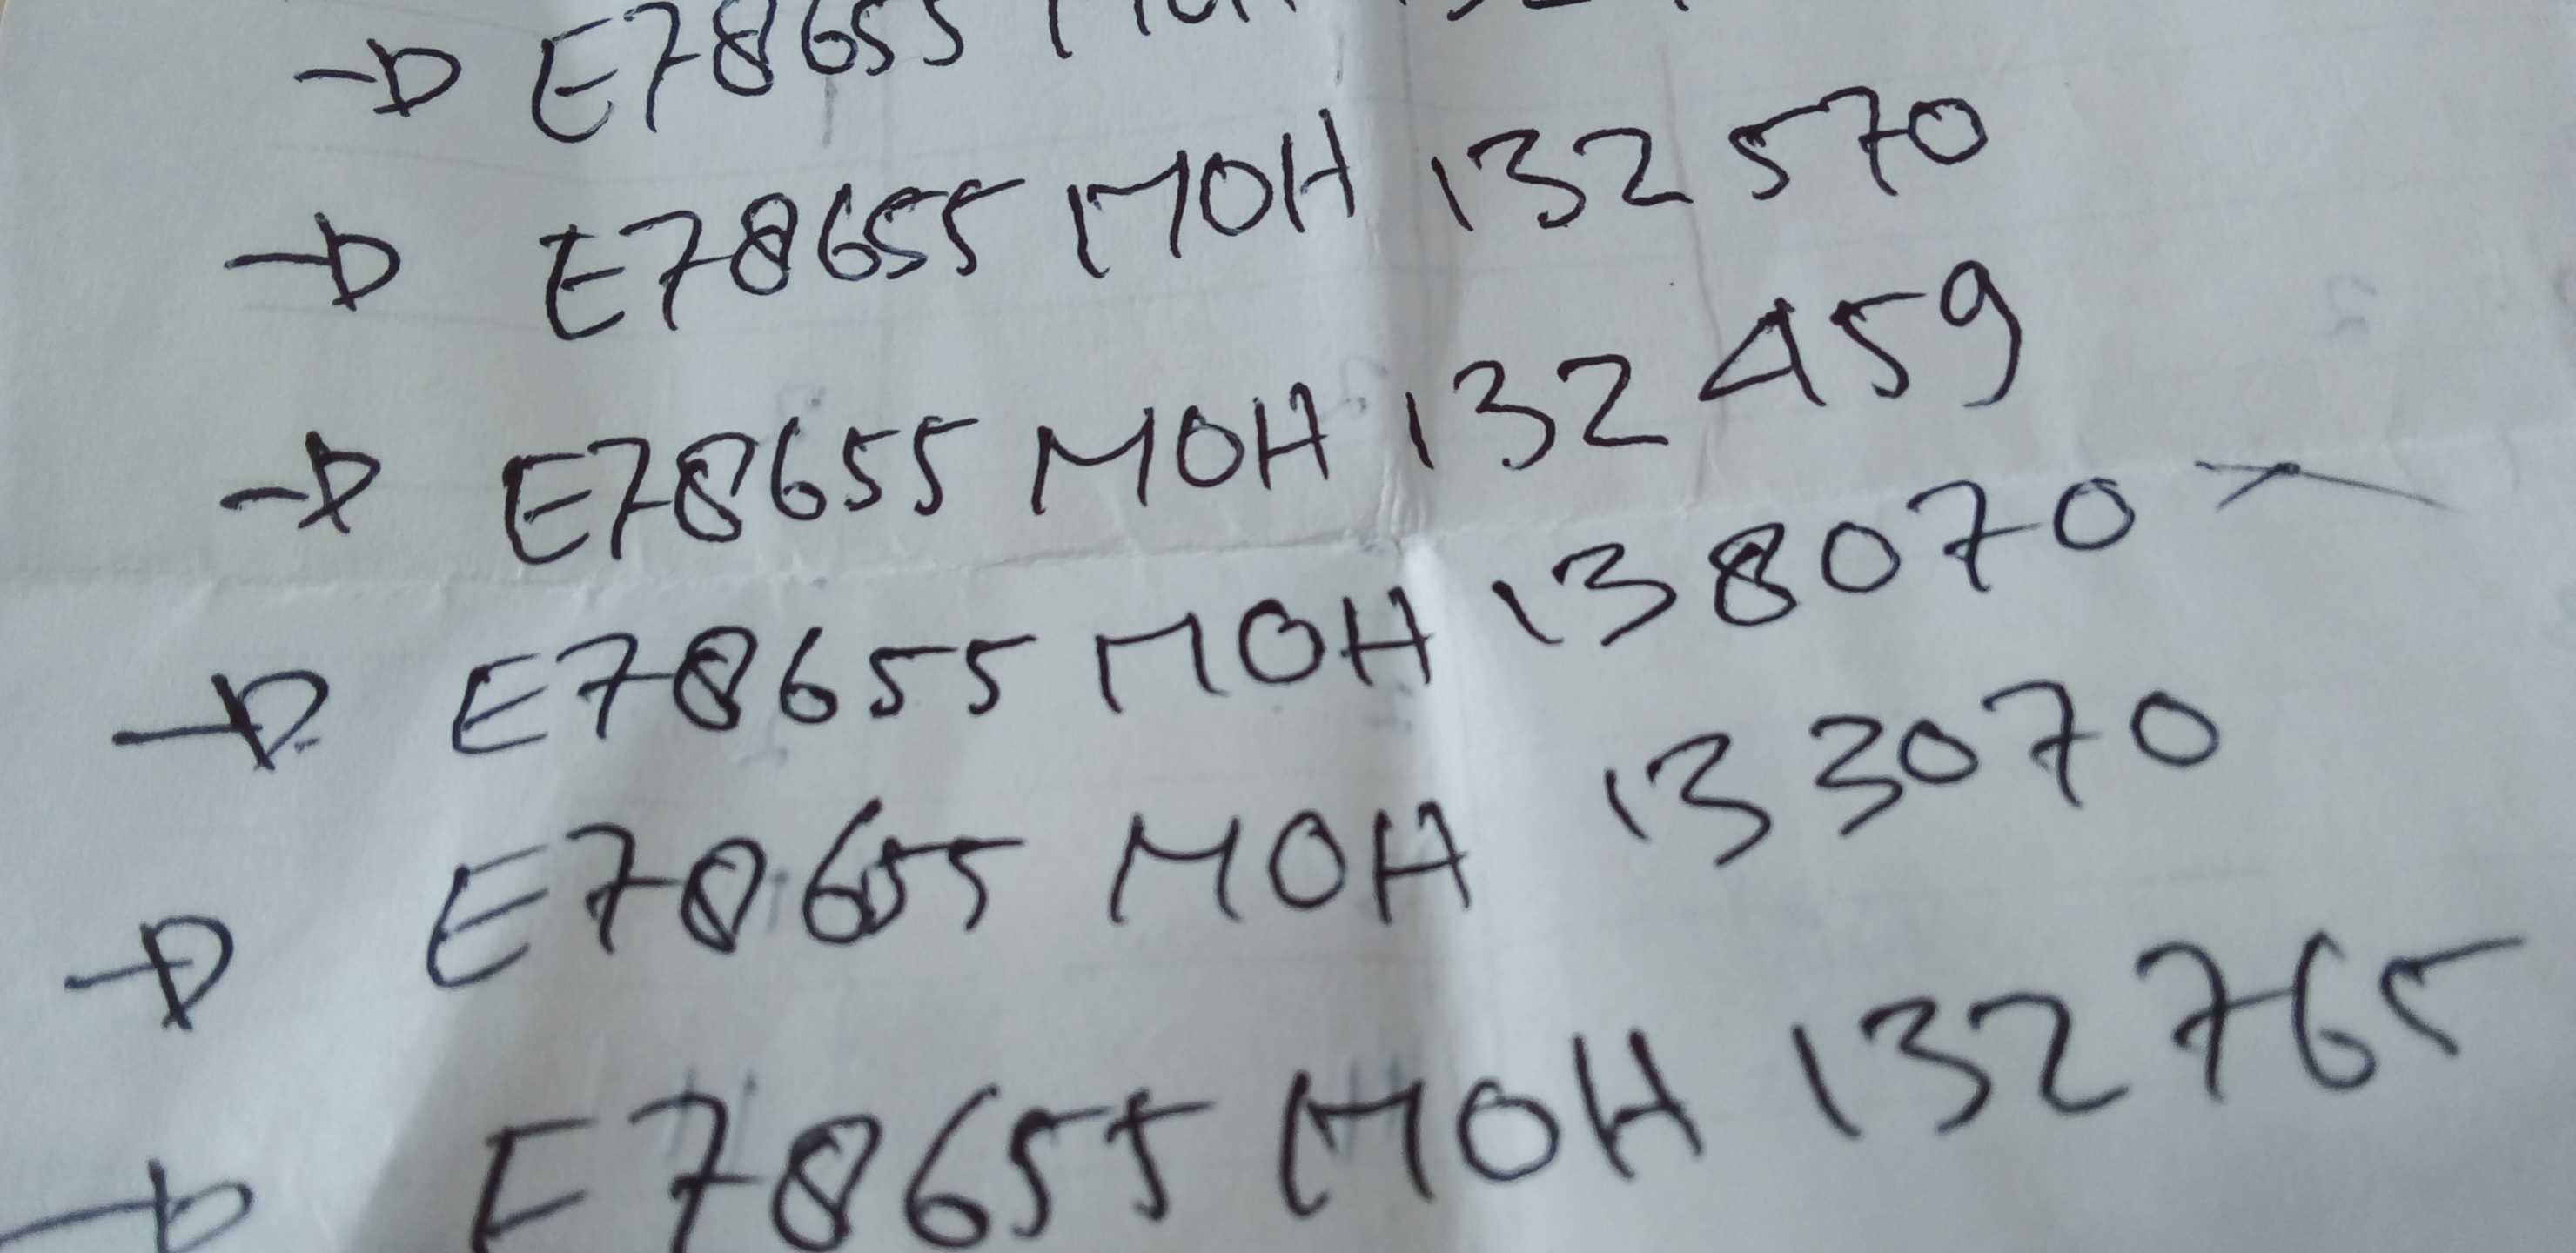 → E78655
→ E78655 MOH 132570
→ E78655 MOH 132459
→ E78655 MOH 138070
→ E78655 MOH 133070
→ E78655 MOH 132765